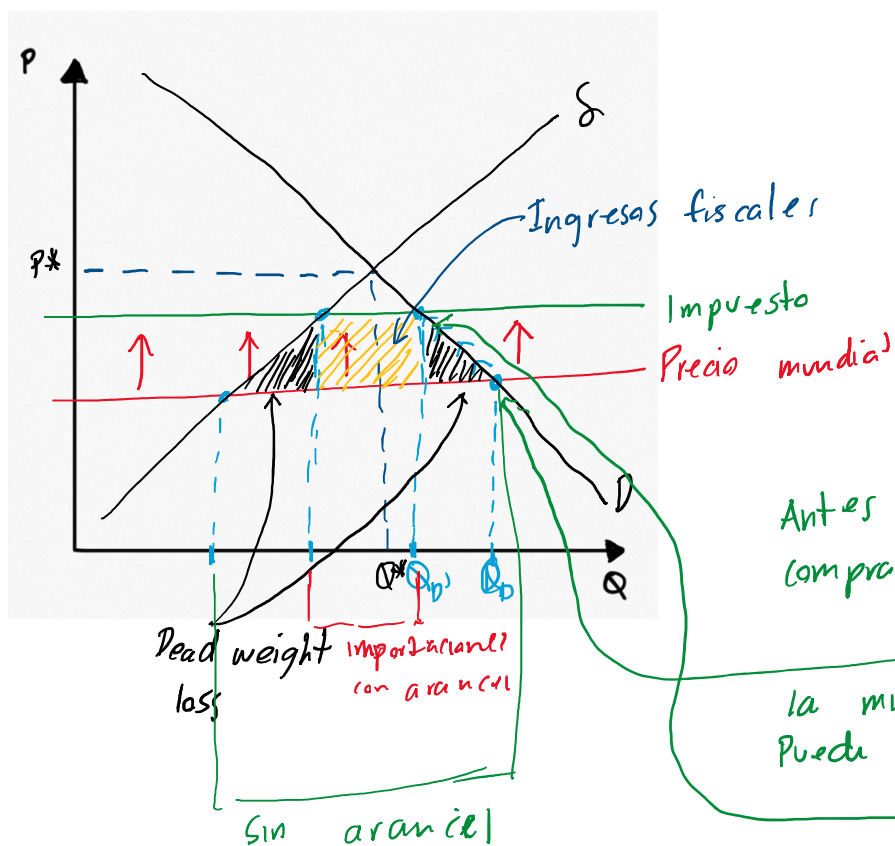 P
S
Ingresos fiscales
P*
Impuesto
Precio mundial
D
Antes
compra
Q* Q_D' Q_D
Q
Dead weight
loss
importaciones
con arancel
la mu
Puede
Sin arancel